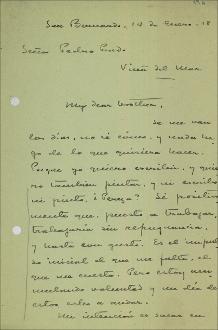 San Bernardo, 14 de Enero - 18
Señor Pedro Prado
Viña del Mar
My dear brother,
Se me van
los días, no sé cómo, y nada ha-
go de lo que quisiera hacer.
Porque yo quiero escribir, y quie-
ro también pintar, y ni escribo
ni pinto. ¿Pereza? Sé positiva-
mente que, puesto a trabajar,
trabajaría sin repugnancia,
y hasta con gusto. Es el impul-
so inicial el que me falta, el que
me cuesta. Pero estoy
voluntad y un día de
estos echo a andar.
Mi intención es sacar en